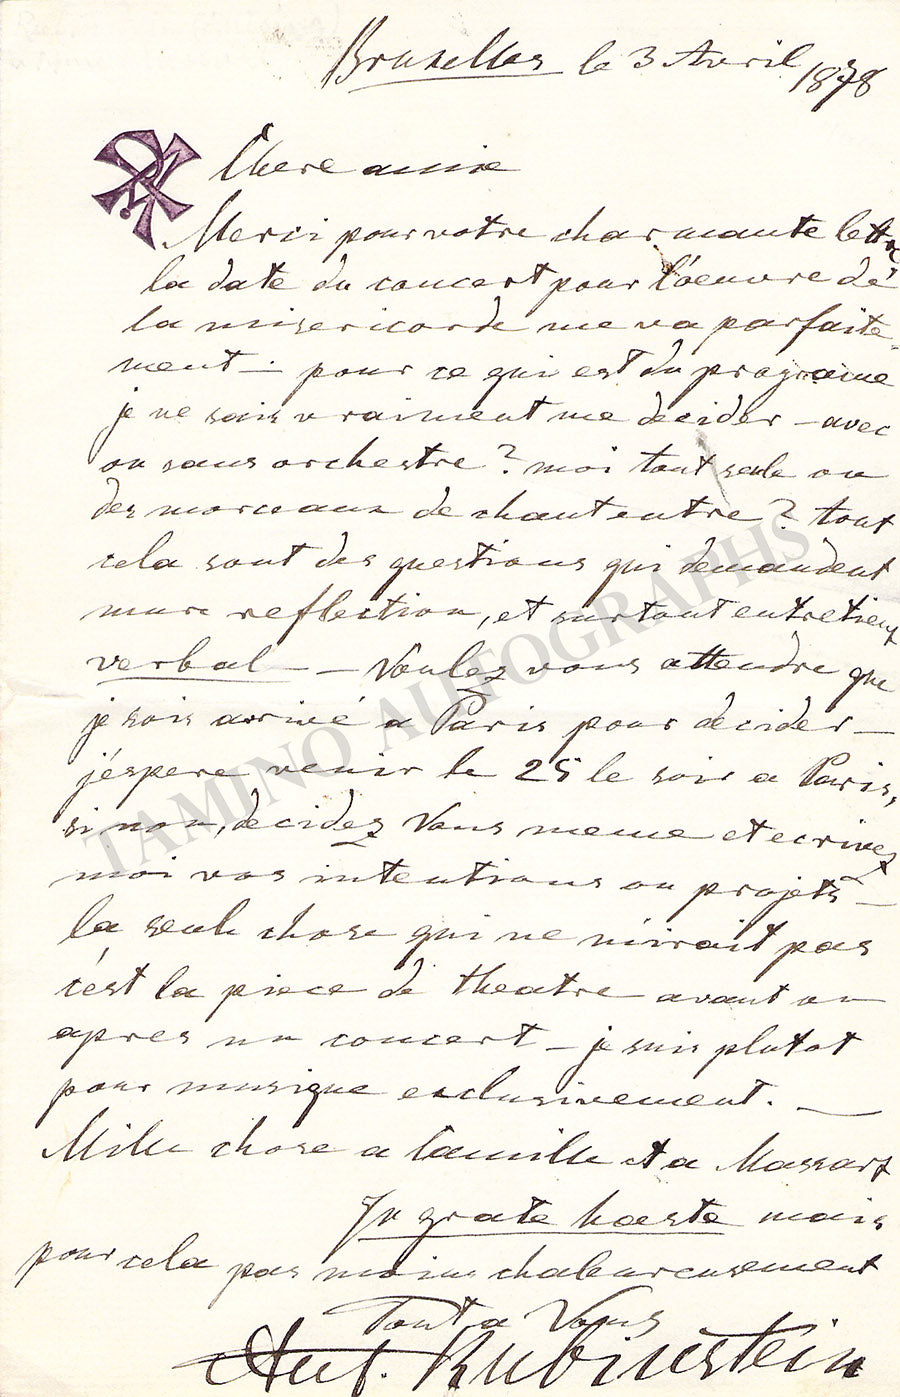 Bruxelles le 3 Avril
1878
Chere amie
Merci pour votre charmante lettre
la date du concert pour l'oeuvre de
la misericorde me va parfaite-
ment – pour ce qui est du programe
je ne sais vraiment me decider – avec
ou sans orchestre? moi tout seule ou
des morceaux de chant entre? tout
cela sont des questions qui demandent
mure reflection, et surtout entretien
verbal – Voulez vous attendre que
je sois arrivé a Paris pour decider –
j'éspere venir le 25 le soir a Paris,
si non, decidez Vous meme et ecrivez
moi vos intentions ou projets –
la seule chose qui ne m'irait pas
c'est la piece de theatre avant ou
apres un concert – je suis plutot
pour musique exclusivement. –
Mille chose a Camille et a Massart
In grote haeste mais
pour cela pas moins chaleureusement
Tout a Vous
Ant. Rubinstein
TAMINO AUTOGRAPHS